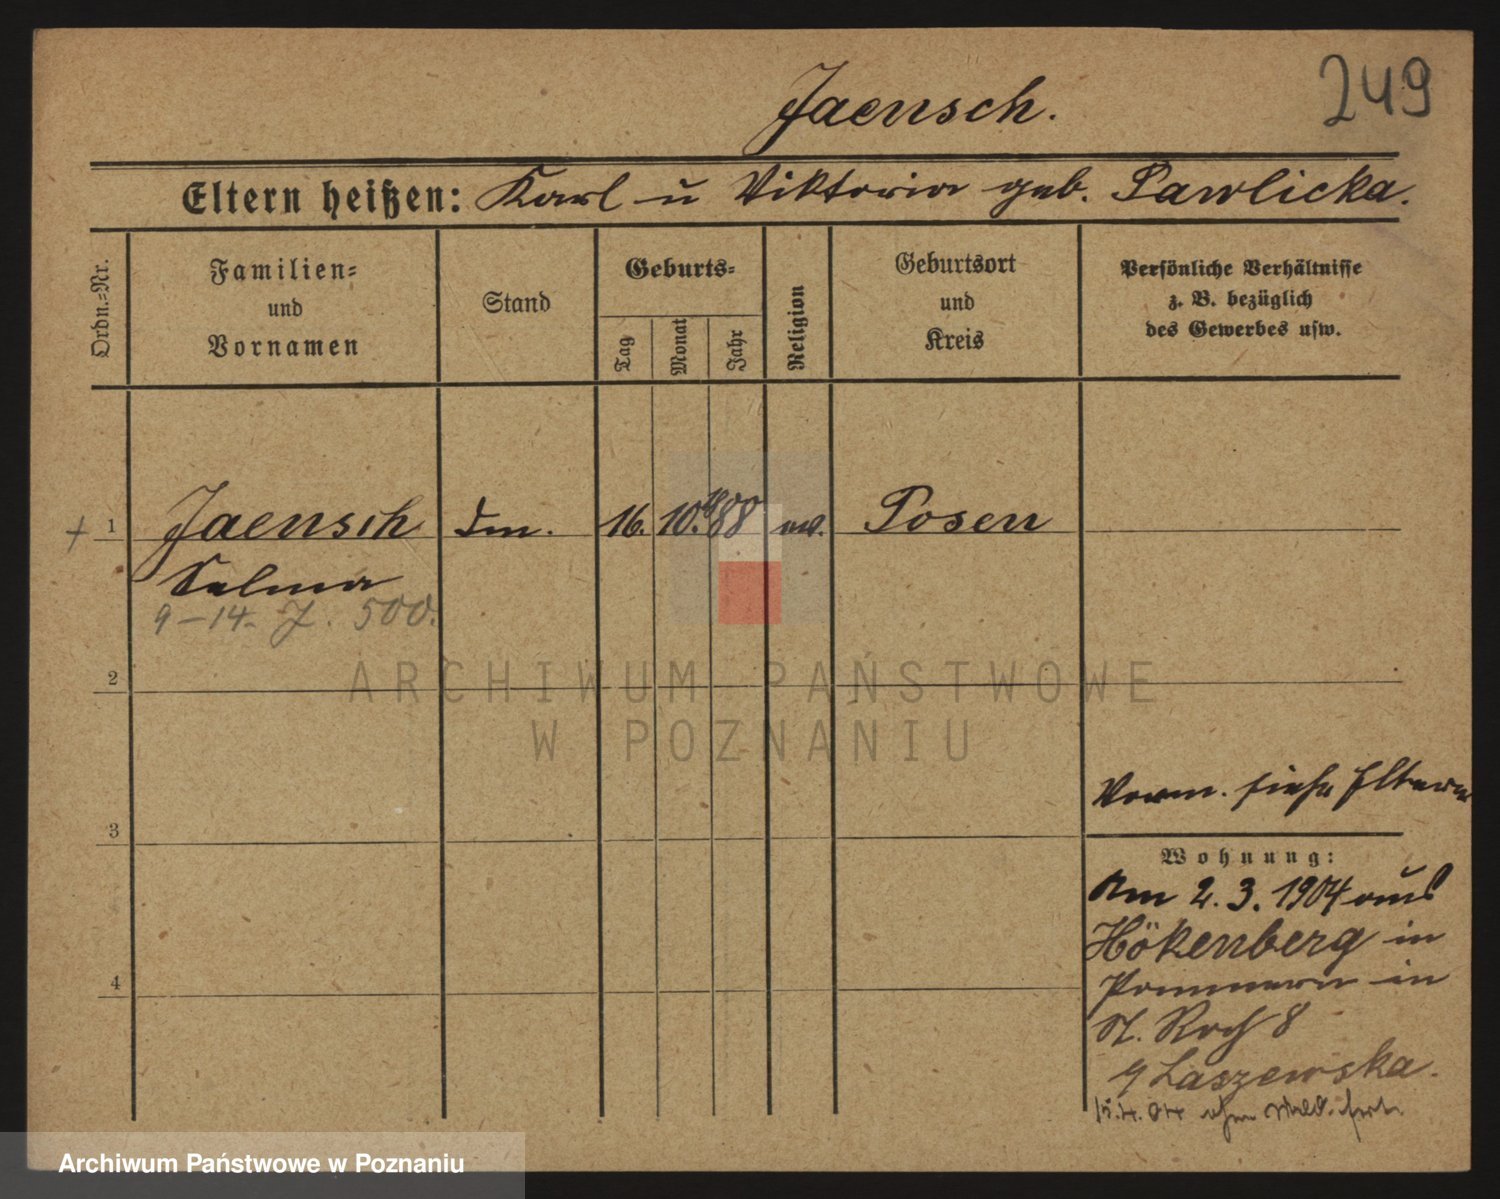 249
Jaensch.
Eltern heißen: Karl u Viktoria geb. Pawlicka.
Ordn.=Nr.
Familien=
und
Vornamen
Stand
Geburts=
Tag
Monat
Jahr
Religion
Geburtsort
und
Kreis
Persönliche Verhältnisse
z. B. bezüglich
des Gewerbes usw.
+ 1 Jaensch 16. 10. 1888 Posen
Selma
9-14. J. 500.
2
ARCHIWUM PAŃSTWOWE
W POZNANIU
3
Vorm. siehe Eltern
Wohnung:
Am 2.3.1904 aus
Hökenberg in
Pommern in
St. Roch 8
Laszewska.
4
15.4.04
Archiwum Państwowe w Poznaniu